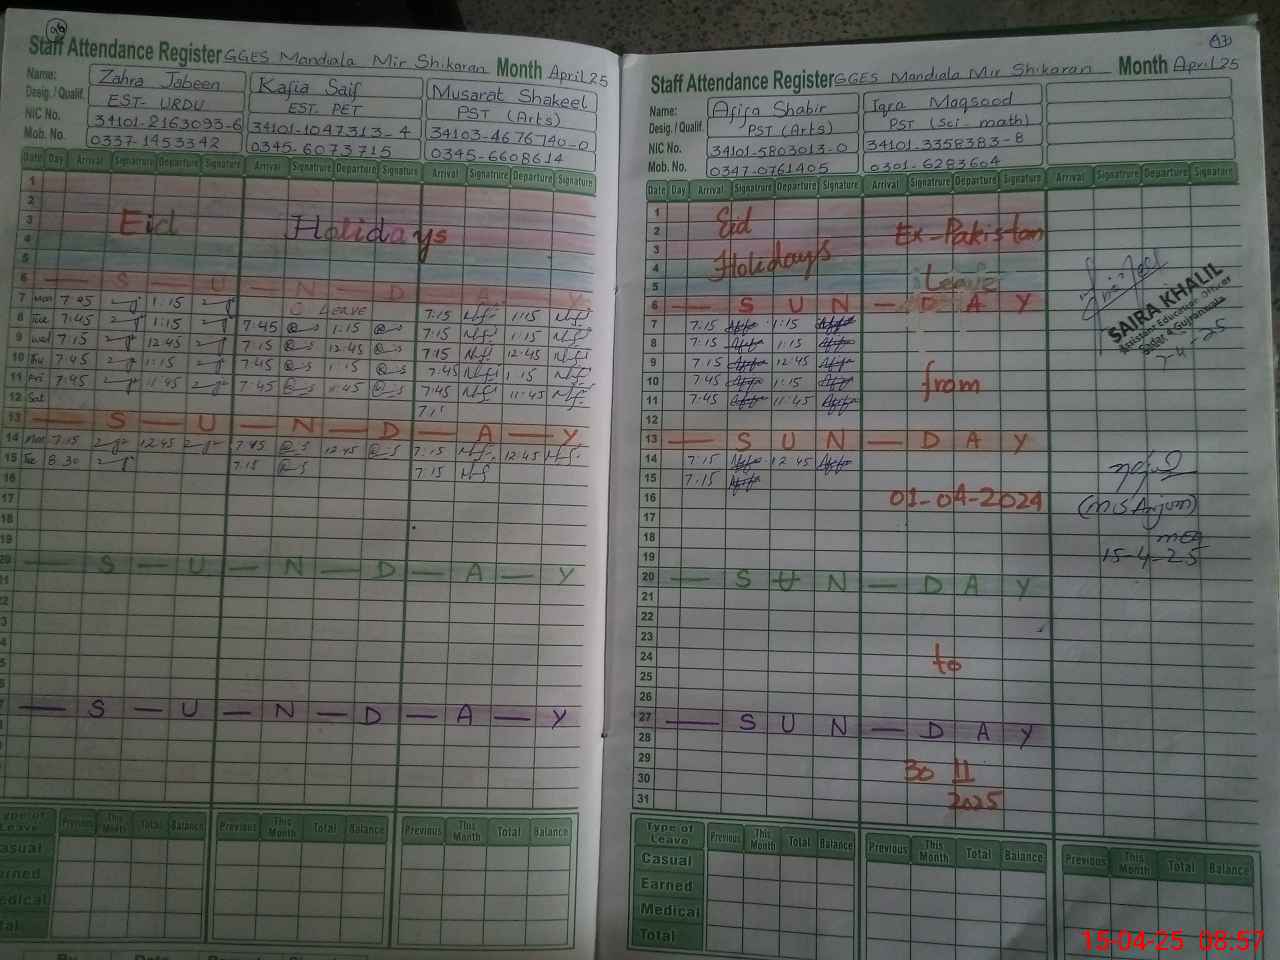 96
Staff Attendance Register GGES Mandiala Mir Shikaran Month April 25
Name: Zahra Jabeen Kafia Saif Musarat Shakeel
Desig. / Qualif. EST- URDU EST. PET PST (Arts)
NIC No. 34101-2163093-6 34101-1047313-4 34103-4676740-0
Mob. No. 0337-1453342 0345-6073715 0345-6608614
Date Day Arrival Signatrure Departure Signature Arrival Signatrure Departure Signature Arrival Signatrure Departure Signature
1
2
3 Eid Holidays
4
5
6 — S — U — N — D — A — Y
7 Mon 7:45 1:15 C Leave 7:15 1:15
8 Tue 7:45 1:15 7:45 1:15 7:15 1:15
9 Wed 7:15 12:45 7:15 12:45 7:15 12:45
10 Thu 7:45 1:15 7:45 1:15 7:45 1:15
11 Fri 7:45 11:45 7:45 11:45 7:45 11:45
12 Sat
13 — S — U — N — D — A — Y
14 Mon 7:15 12:45 7:45 12:45 7:15 12:45
15 Tue 8:30 7:15 7:15
16
17
18
19
20 — S — U — N — D — A — Y
— S — U — N — D — A — Y
Type of Leave Previous This Month Total Balance Previous This Month Total Balance Previous This Month Total Balance
97
Staff Attendance Register GGES Mandiala Mir Shikaran Month April 25
Name: Afifa Shabir Iqra Maqsood
Desig. / Qualif. PST (Arts) PST (Sci. math)
NIC No. 34101-5803013-0 34101-3358383-8
Mob. No. 0347-0761405 0301-6283604
Date Day Arrival Signatrure Departure Signature Arrival Signatrure Departure Signature Arrival Signatrure Departure Signature
1 Eid
2 Ex-Pakistan
3 Holidays
4
5 Leave
6 — S U N — D A Y
7 7:15 1:15
8 7:15 1:15
9 7:15 12:45
10 7:45 1:15 from
11 7:45 11:45
12
13 — S U N — D A Y
14 7:15 12:45
15 7:15
16 01-04-2024
17
18
19
20 — S U N — D A Y
21
22
23
24 to
25
26
27 — S U N — D A Y
28
29
30 30 11
31 2025
SAIRA KHALIL
Assistant Education Officer
(MS Anjum)
MEA
15-4-25
Type of Leave Previous This Month Total Balance Previous This Month Total Balance Previous This Month Total Balance
Casual
Earned
Medical
Total
15-04-25 08:57